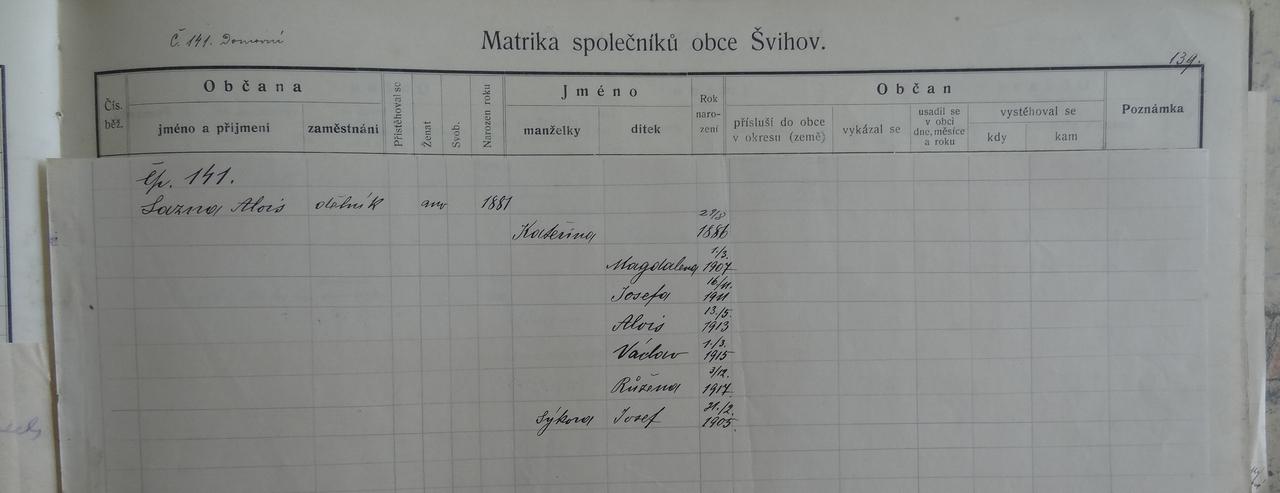 Č. 141. Domovní
Matrika společníků obce Švihov.
139.
Čís. běž.
Občana
jméno a přijmení
zaměstnání
Přistěhoval se
Ženat
Svob.
Narozen roku
Jméno
manželky
dítek
Rok naro- zení
Občan
přísluší do obce v okresu (země)
vykázal se
usadil se v obci dne, měsíce a roku
vystěhoval se
kdy
kam
Poznámka
Čp. 141.
Lazna Alois dělník ano 1881
Kateřina 1886
Magdalena 1/3. 1907
Josefa 16/11. 1911
Alois 13./5. 1913
Václav 1./3. 1915
Růžena 3/12. 1917
Sýkora Josef 21./2. 1905